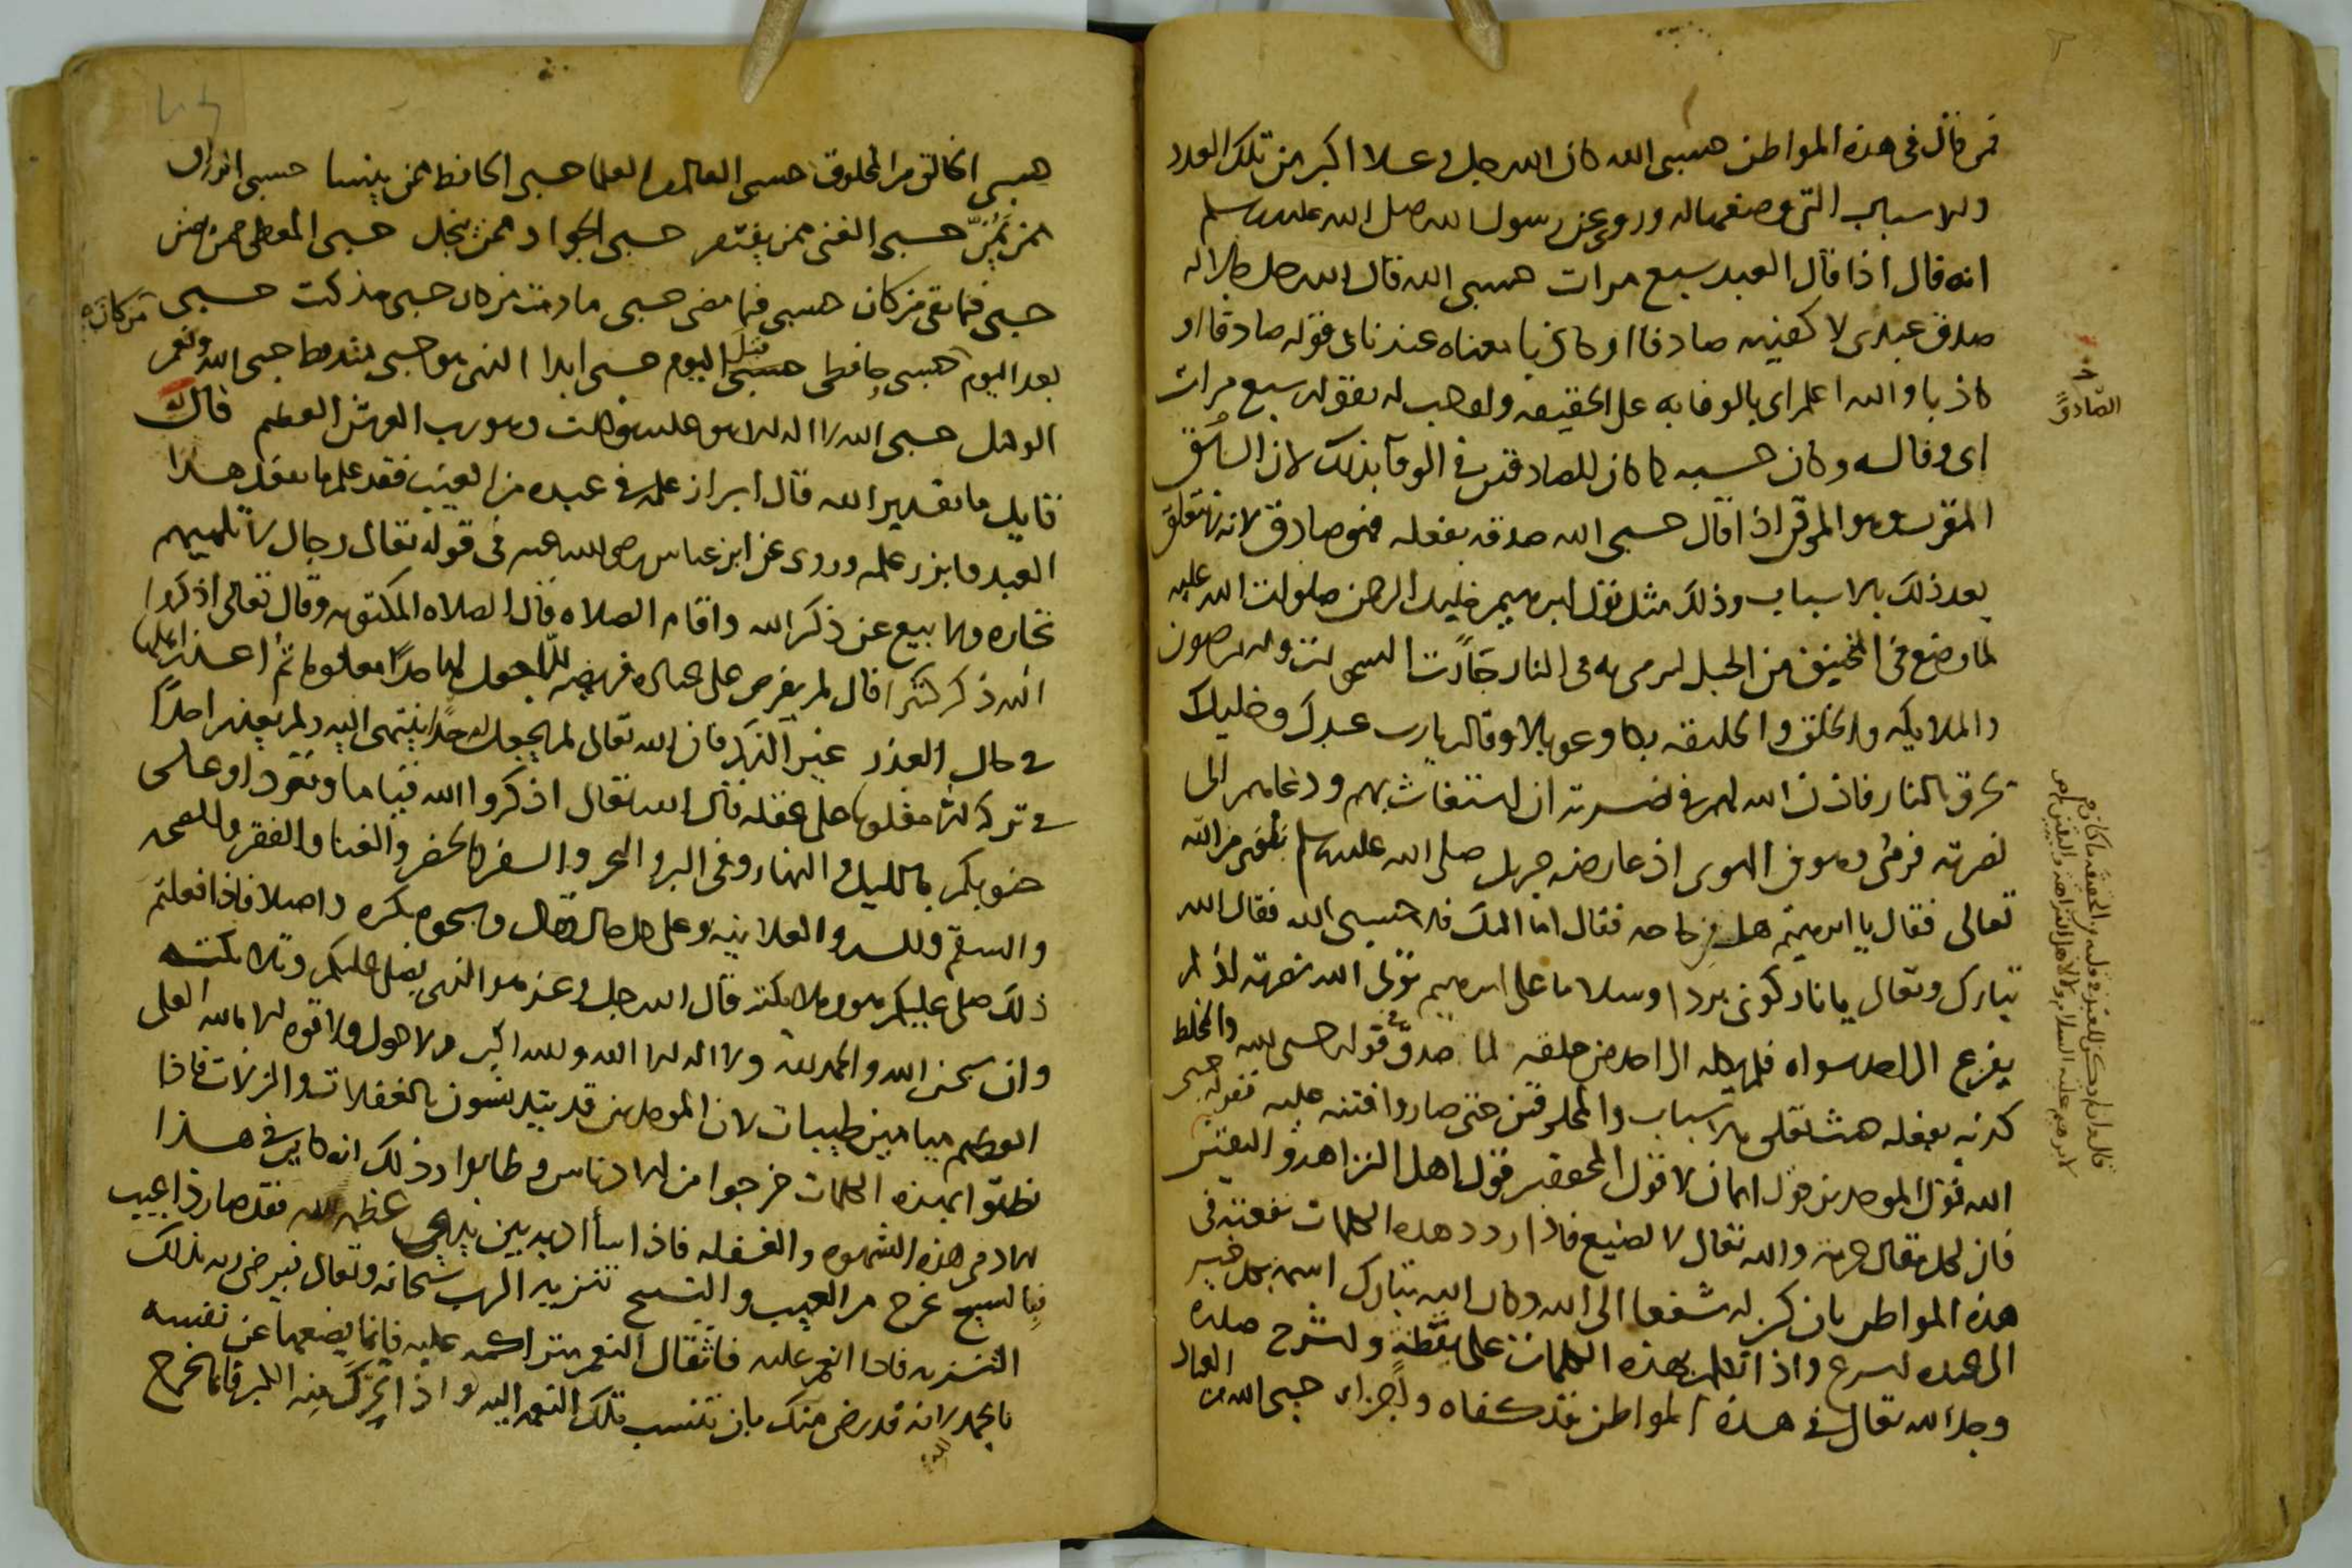 فمن قال في هذه المواطن حسبي الله كان الله جل وعلا اكبر من تلك العدد
والاسباب التي وصفها له وروي عن رسول الله صلى الله عليه وسلم
انه قال اذا قال العبد سبع مرات حسبي الله قال الله جل جلاله
صدق عبدي لاكفينه صادقا او كاذبا معناه عندنا في قوله صادقا او
كاذبا والله اعلم اي بالوفا به على الحقيقه ولم يف له بقوله سبع مرات
اي وفا له وكان حسبه كما كان للصادقين في الوفا بذلك لان السابق
المقرب وهو الموقن اذا قال حسبي الله صدقه بفعله فهو صادق لانه لا يتعلق
بعد ذلك بالاسباب وذلك مثل قول ابرهيم خليل الرحمن صلوات الله عليه
لما وضع في المنجنيق من الجبل ليرمى به في النار جأرت السموات والارضون
والملايكه والخلق والخليقه بكا وعويلا وقالوا يا رب عبدك وخليلك
يحرق بالنار فاذن الله لهم في نصرته ان استغاث بهم ودعاهم الى
نصرته فرمي وهو في الهوى اذ عارضه جبريل صلى الله عليه وسلم من الله
تعالى فقال يا ابرهيم هل من حاجه فقال اما اليك فلا حسبي الله فقال الله
تبارك وتعالى يا نار كوني بردا وسلاما على ابرهيم تولى الله نصرته اذ لم
يفزع الى احد سواه فلم يكله الى احد من خلقه لما صدق في قوله حسبي الله والمخلط
كذبه بفعله حيث تعلق بالاسباب والمخلوقين حتى صاروا فتنه عليه فقوله حسبي
الله قول الموحدين قول ايمان لا قول المحققين قول اهل الزاهد واليقين
فان لكل مقال حرمه والله تعالى لا يضيع فاذا ردد هذه الكلمات نفعته في
هذه المواطن بان تكن له شفعا الى الله وكان الله تبارك اسمه بكل خير
الى عبده اسرع واذا تكلم بهذه الكلمات على يقظة وانشرح صدره
وجد الله تعالى في هذه المواطن فقد كفاه واجزاه حسبي الله من العباد
الصادق
حسبي الخالق من المخلوق حسبي العالم من العلما حسبي الحافظ ممن ينسا حسبي الرزاق
ممن يمن حسبي الغني ممن يفتقر حسبي الجواد ممن يبخل حسبي المعطي ممن يضن
حسبي فيما بقي من كان حسبي فيما مضى حسبي ما دمت من كان حسبي مذ كنت حسبي من كان
بعد اليوم حسبي حافظي قبل اليوم حسبي ابدا الذي هو حسبي منذ قط حسبي الله ونعم
الوكيل حسبي الله لا اله الا هو عليه توكلت وهو رب العرش العظيم قال له
قايل ما تقدير الله قال ابراز علمه في عبده من الغيب فقد علم ما يفعل هذا
العبد فابرز علمه وروى عن ابن عباس رضي الله عنه في قوله تعالى رجال لا تلهيهم
تجاره ولا بيع عن ذكر الله واقام الصلاه قال الصلاه المكتوبه وقال تعالى اذكروا
الله ذكرا كثيرا قال لم يفرض على عباده فريضه الا جعل لها حدا معلوما ثم اعذر اهلها
في حال العذر غير الذكر فان الله تعالى لم يجعل له حدا ينتهى اليه ولم يعذر احدا
في تركه الا مغلوبا على عقله قال الله تعالى اذكروا الله قياما وقعودا وعلى
جنوبكم بالليل والنهار وفي البر والبحر والسفر والحضر والغنا والفقر والصحه
والسقم والسر والعلانيه وعلى كل حال وقال وسبحوه بكره واصيلا فاذا فعلتم
ذلك صلى عليكم هو وملايكته قال الله جل وعز هو الذي يصلي عليكم وملايكته
وان سبحن الله والحمد لله ولا اله الا الله والله اكبر ولا حول ولا قوه الا بالله العلي
العظيم ميامين طيبات لان الموحدين قد يتدنسون بالغفلات والزلات فاذا
نطقوا بهذه الكلمات خرجوا من الادناس وطابوا وذلك انه كاين في هذا
الادمي هذه الشهوه والغفله فاذا اسأ الادب بين يدي عظمه الله فقد صار ذا عيب
فبالتسبيح خرج من العيب والتسبيح تنزيه الرب سبحانه وتعالى فيرضى به بذلك
التنزيه فاذا انعم عليه فاثقال النعم متراكمه عليه فانما يضعها عن نفسه
بالحمد لانه قد رضي منك بان تنسب تلك النعم اليه واذا تحرك منه الكبر فانما يخرج